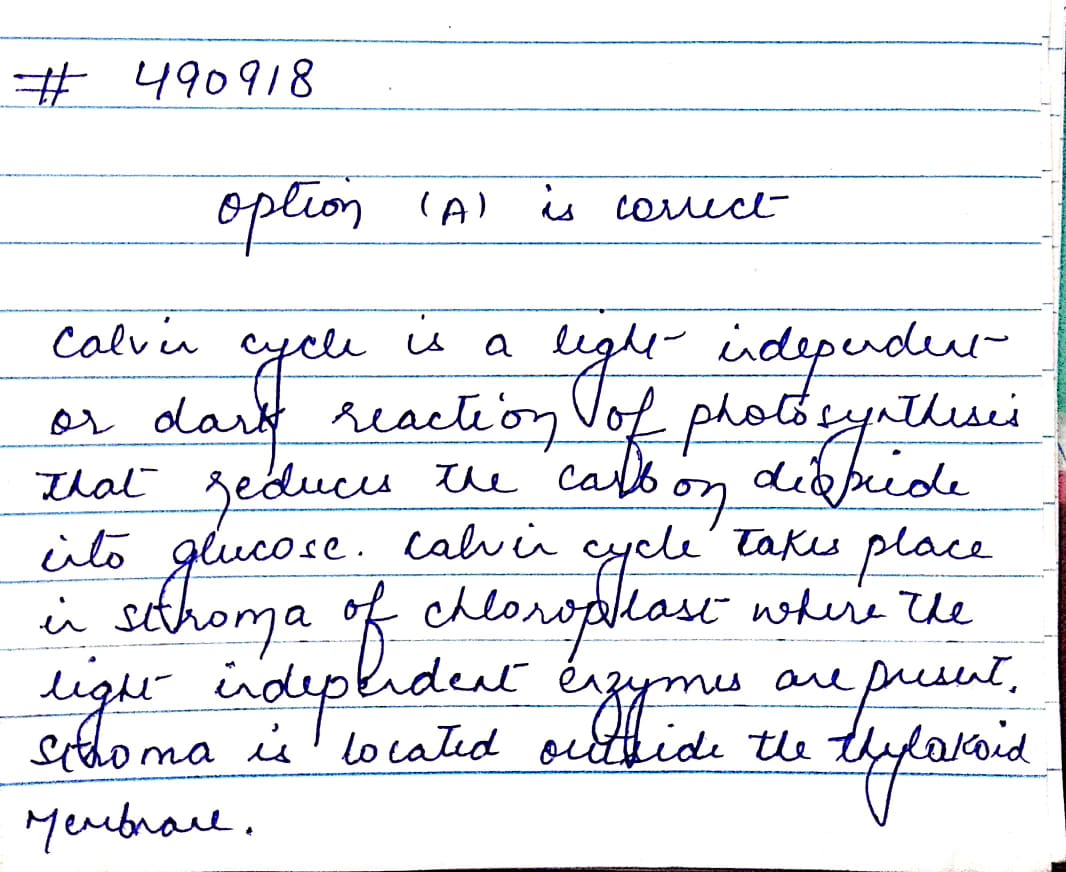 # 490918
option (A) is correct
Calvin cycle is a light independent
or dark reaction of photosynthesis
that reduces the carbon dioxide
into glucose. Calvin cycle takes place
in stroma of chloroplast where the
light independent enzymes are present.
Stroma is located outside the thylakoid
Membrane.